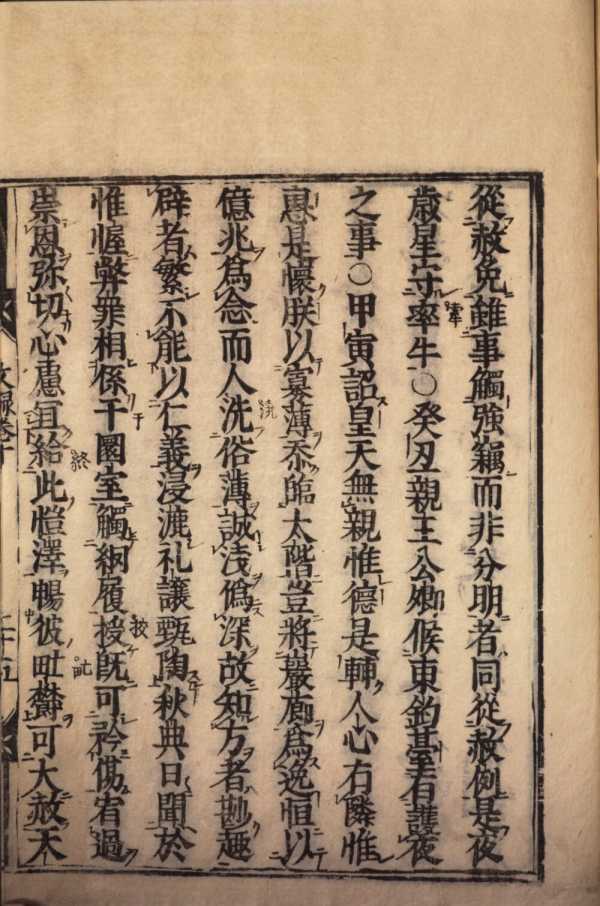 從赦免雖事觸強竊而非分明者同從赦例是夜
歳星守率牛○癸丑親王公卿候東釣臺有護夜
之事○甲寅詔皇天無親惟德是輔人心右隣惟
惠是懷朕以寡薄忝臨太階豈將巖廊爲逸恒以
億兆爲念而人洗俗薄誠浅僞深故知方者尠趣
辟者繁不能以仁義浸漉礼譲甄陶秋典日聞於
惟幄弊罪相係千圄室觸網履授既可矜傷宥過
崇恩弥切心慮宜給此愷澤暢彼甿欝可大赦天